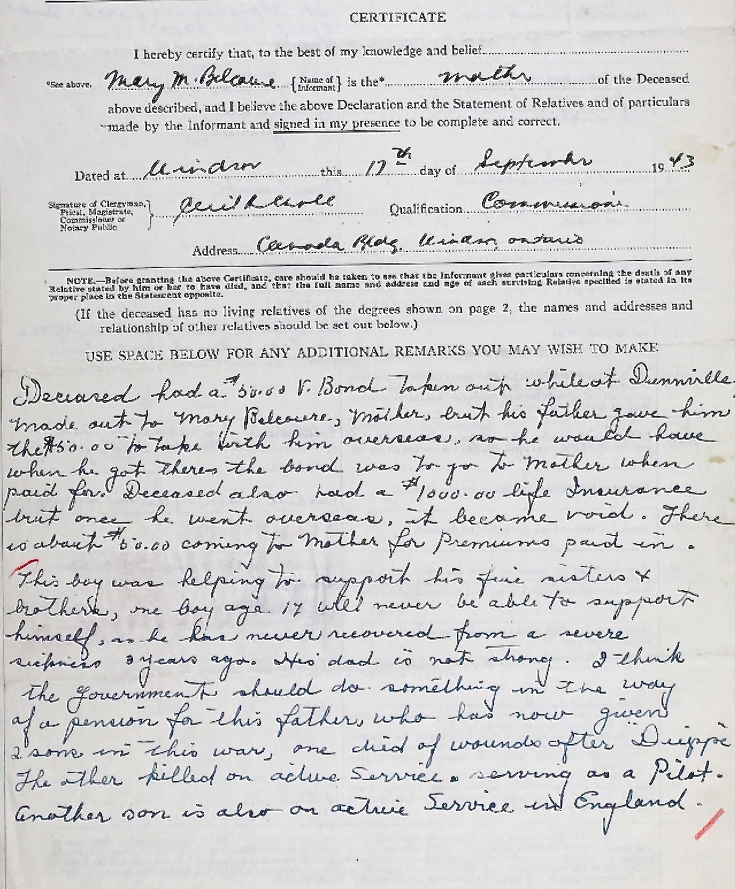 CERTIFICATE
I hereby certify that, to the best of my knowledge and belief
*See above. Mary M. Belcoure {Name of Informant} is the* mother of the Deceased
above described, and I believe the above Declaration and the Statement of Relatives and of particulars
made by the Informant and signed in my presence to be complete and correct.
Dated at Windsor this 17th day of September 1943
Signature of Clergyman, Priest, Magistrate, Commissioner or Notary Public} Qualification Commissioner
Address Canada Bldg. Windsor, Ontario
NOTE.—Before granting the above Certificate, care should be taken to see that the Informant gives particulars concerning the death of any
Relative stated by him or her to have died, and that the full name and address and age of each surviving Relative specified is stated in its
proper place in the Statement opposite.
(If the deceased has no living relatives of the degrees shown on page 2, the names and addresses and
relationship of other relatives should be set out below.)
USE SPACE BELOW FOR ANY ADDITIONAL REMARKS YOU MAY WISH TO MAKE
Deceased had a $50.00 V. Bond taken out while at Dunnville
made out to Mary Belcoure, Mother, but his father gave him
the $50.00 to take with him overseas, so he would have
when he got there the bond was to go to Mother when
paid for. Deceased also had a $1000.00 life Insurance
but once he went overseas, it became void. There
is about $50.00 coming to Mother for Premiums paid in.
This boy was helping to support his five sisters &
brothers, one boy age 17 will never be able to support
himself, as he has never recovered from a severe
sickness 3 years ago. His dad is not strong. I think
the Government should do something in the way
of a pension for this father, who has now given
2 sons in this war, one died of wounds after Dieppe
The other killed on active Service. serving as a Pilot.
Another son is also on active Service in England.